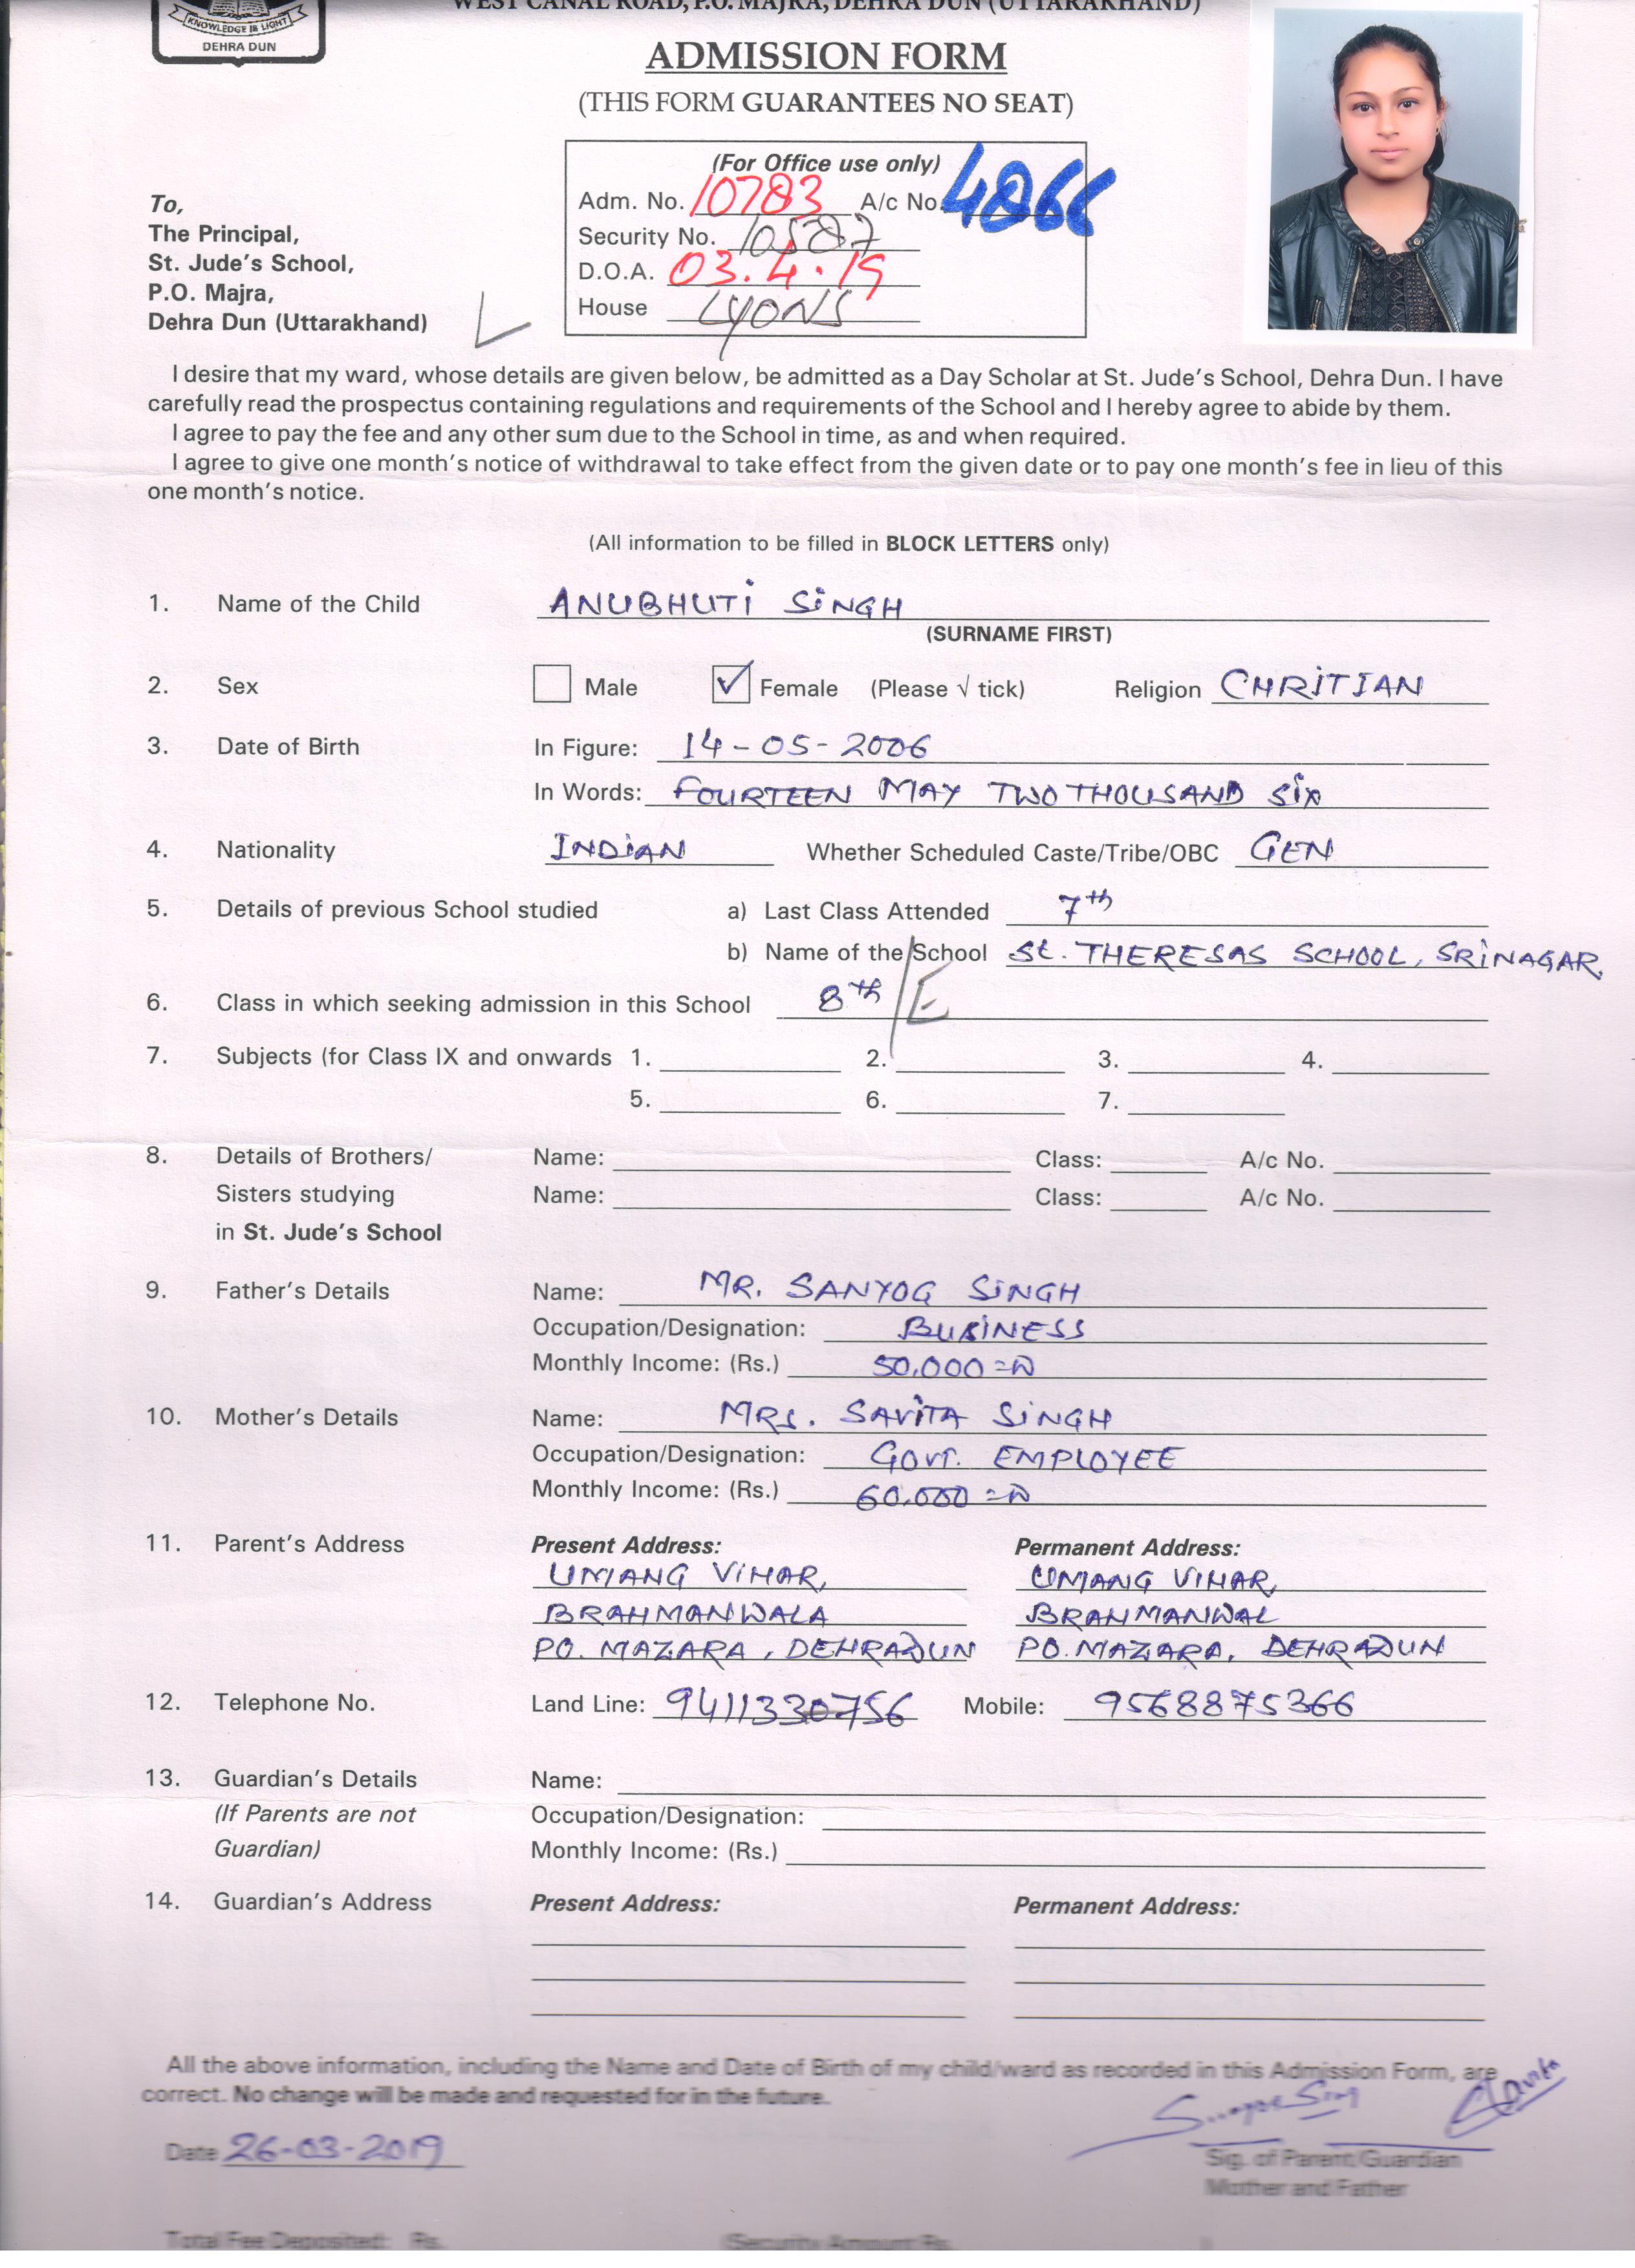 WEST CANAL ROAD, P.O. MAJRA, DEHRA DUN (UTTARAKHAND)
KNOWLEDGE IS LIGHT
DEHRA DUN
ADMISSION FORM
(THIS FORM GUARANTEES NO SEAT)
(For Office use only)
Adm. No. 10783 A/c No. 4866
Security No. 10587
D.O.A. 03.4.19
House LYONS
To,
The Principal,
St. Jude's School,
P.O. Majra,
Dehra Dun (Uttarakhand)
I desire that my ward, whose details are given below, be admitted as a Day Scholar at St. Jude's School, Dehra Dun. I have
carefully read the prospectus containing regulations and requirements of the School and I hereby agree to abide by them.
I agree to pay the fee and any other sum due to the School in time, as and when required.
I agree to give one month's notice of withdrawal to take effect from the given date or to pay one month's fee in lieu of this
one month's notice.
(All information to be filled in BLOCK LETTERS only)
1. Name of the Child ANUBHUTI SINGH
(SURNAME FIRST)
2. Sex Male ✓ Female (Please √ tick) Religion CHRITIAN
3. Date of Birth In Figure: 14-05-2006
In Words: FOURTEEN MAY TWO THOUSAND SIX
4. Nationality INDIAN Whether Scheduled Caste/Tribe/OBC GEN
5. Details of previous School studied a) Last Class Attended 7th
b) Name of the School St. THERESAS SCHOOL, SRINAGAR,
6. Class in which seeking admission in this School 8th /E
7. Subjects (for Class IX and onwards 1. 2. 3. 4.
5. 6. 7.
8. Details of Brothers/ Name: Class: A/c No.
Sisters studying Name: Class: A/c No.
in St. Jude's School
9. Father's Details Name: MR. SANYOG SINGH
Occupation/Designation: BUSINESS
Monthly Income: (Rs.) 50,000 =00
10. Mother's Details Name: MRS. SAVITA SINGH
Occupation/Designation: GOVT. EMPLOYEE
Monthly Income: (Rs.) 60,000 =00
11. Parent's Address Present Address: Permanent Address:
UMANG VIHAR, UMANG VIHAR,
BRAHMANWALA BRAHMANWAL
PO. MAZARA, DEHRADUN PO. MAZARA, DEHRADUN
12. Telephone No. Land Line: 9411330756 Mobile: 9568875366
13. Guardian's Details Name:
(If Parents are not Occupation/Designation:
Guardian) Monthly Income: (Rs.)
14. Guardian's Address Present Address: Permanent Address:
All the above information, including the Name and Date of Birth of my child/ward as recorded in this Admission Form, are
correct. No change will be made and requested for in the future.
Date 26-03-2019
Sig. of Parent/Guardian
Mother and Father
Total Fee Deposited: Rs. (Security Amount Rs.